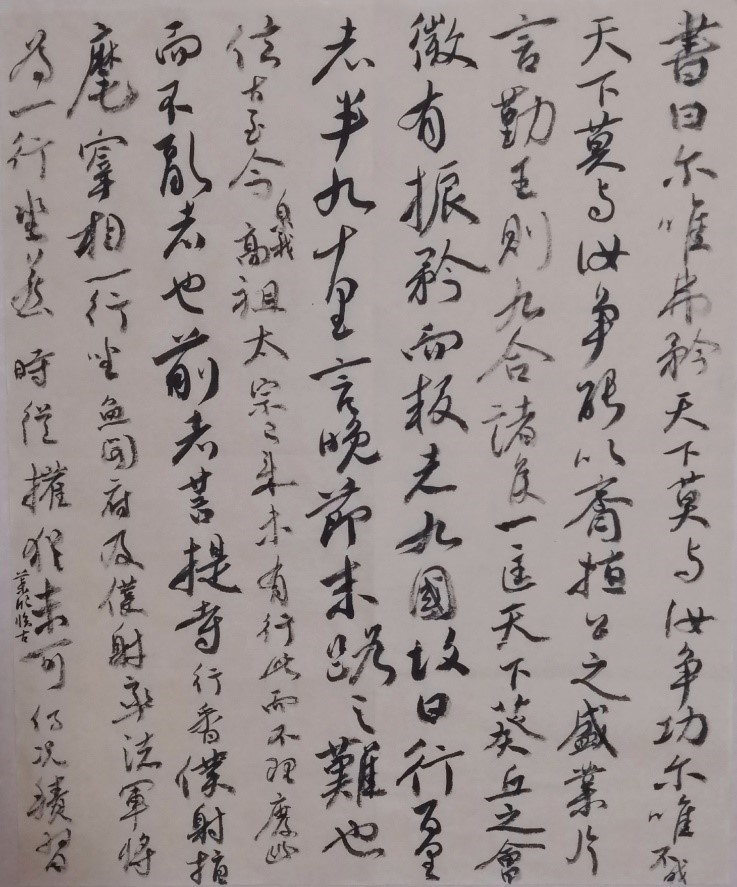 書曰尔唯弗矜天下莫与汝争功尔唯不伐
天下莫与汝争能以齊桓公之盛業片
言勤王則九合諸侯一匡天下葵丘之會
微有振矜而叛者九國故曰行百里
者半九十里言晚節末路之難也
從古至今曁我高祖太宗已来未有行此而不理廢此
而不亂者也前者菩提寺行香僕射指
麾宰相一行坐魚開府及僕射率諸軍將
為一行坐若時從權猶未可何況積習
臨古